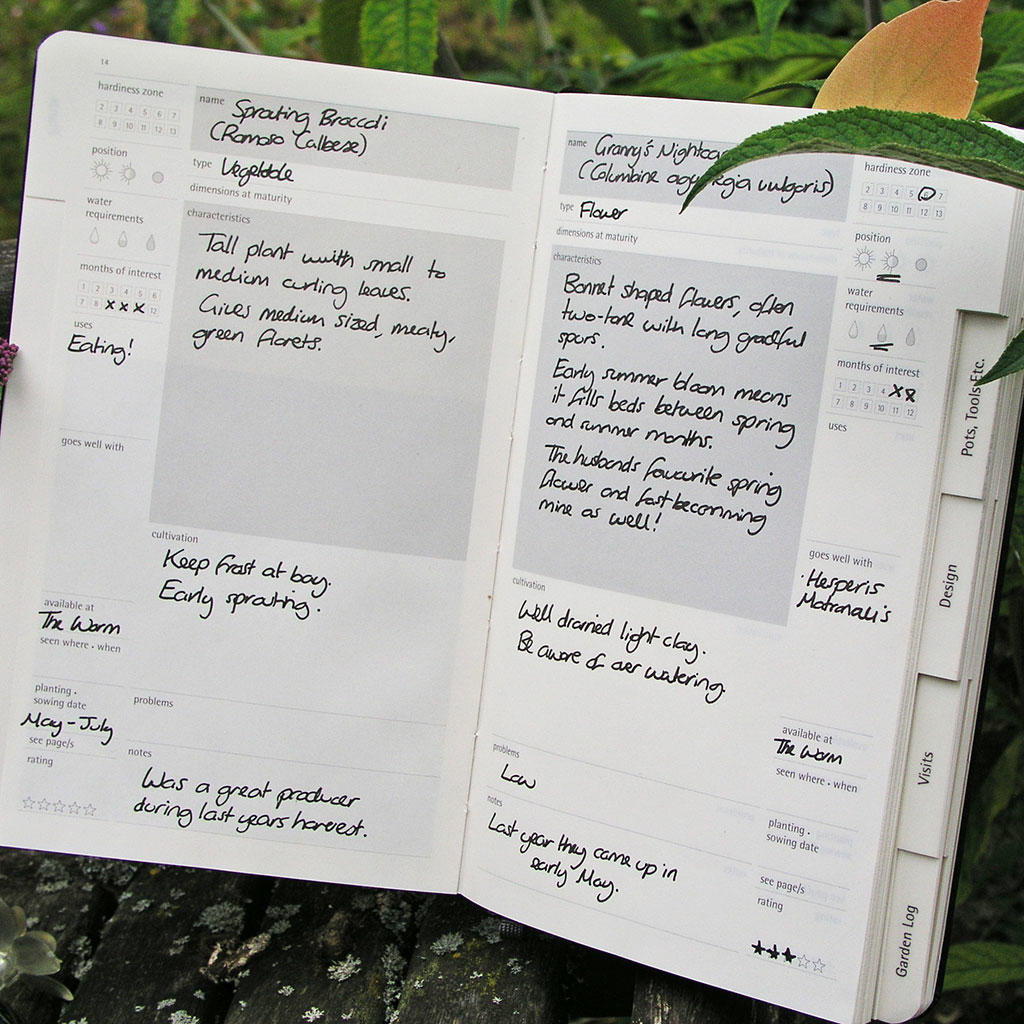 14
hardiness zone
2 3 4 5 6 7
8 9 10 11 12 13
name Sprouting Broccoli
(Ramoso Calbese)
position
type Vegetable
dimensions at maturity
water
requirements
characteristics
Tall plant wuith small to
medium curling leaves.
Gives medium sized, meaty,
green florets.
months of interest
1 2 3 4 5 6
7 8 x x x 12
uses
Eating!
goes well with
cultivation
Keep frost at bay.
Early sprouting.
available at
The Worm
seen where • when
planting •
sowing date
May - July
see page/s
rating
problems
notes
Was a great producer
during last years harvest.
name Granny's
(Columbine vulgaris)
type Flower
dimensions at maturity
hardiness zone
2 3 4 5 6 7
8 9 10 11 12 13
position
water
requirements
months of interest
1 2 3 4 x x
7 8 9 10 11 12
uses
characteristics
Bonnet shaped flowers, often
two-tone with long graceful
spurs.
Early summer bloom means
it fills beds between spring
and summer months.
The husbands favourite spring
flower and fast becomming
mine as well!
goes well with
Hesperis
Matronali's
cultivation
Well drained light clay.
Be aware of over watering.
available at
The Worm
seen where • when
problems
Low
planting •
sowing date
notes
Last year they came up in
early May.
see page/s
rating
Pots, Tools Etc.
Design
Visits
Garden Log